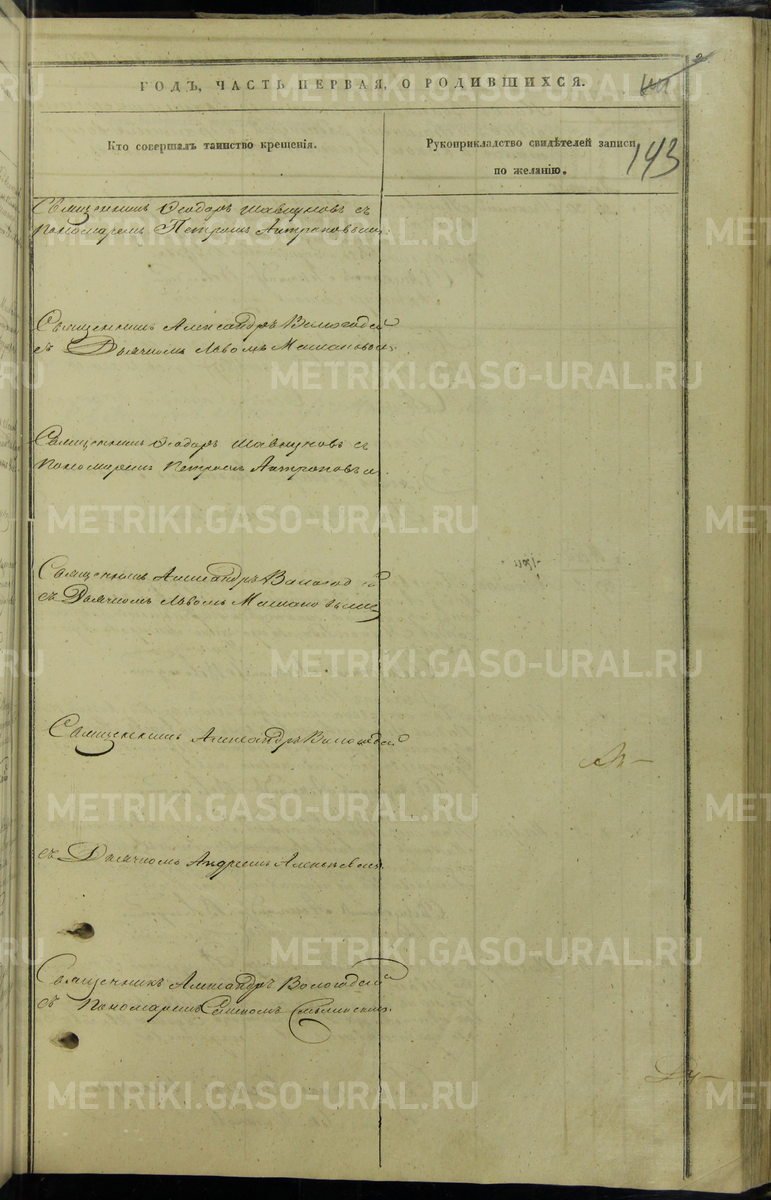 ГОДЪ, ЧАСТЬ ПЕРВАЯ, О РОДИВШИХСЯ.
143
Кто совершалъ таинство крещенія.
Рукоприкладство свидѣтелей записи
по желанію.
Священникъ Ѳеодоръ Шавкуновъ съ
Пономаремъ Петромъ Антроповымъ.
Священникъ Александръ Вологодскій
съ Дьячкомъ Львомъ
Священникъ Ѳеодоръ Шавкуновъ съ
Пономаремъ Петромъ Антроповымъ.
Священникъ Александръ Вологодскій
съ Дьячкомъ Львомъ
Священникъ Александръ Вологодскій
съ Дьячкомъ Андреемъ
Священникъ Александръ Вологодскій
съ Пономаремъ
METRIKI.GASO-URAL.RU